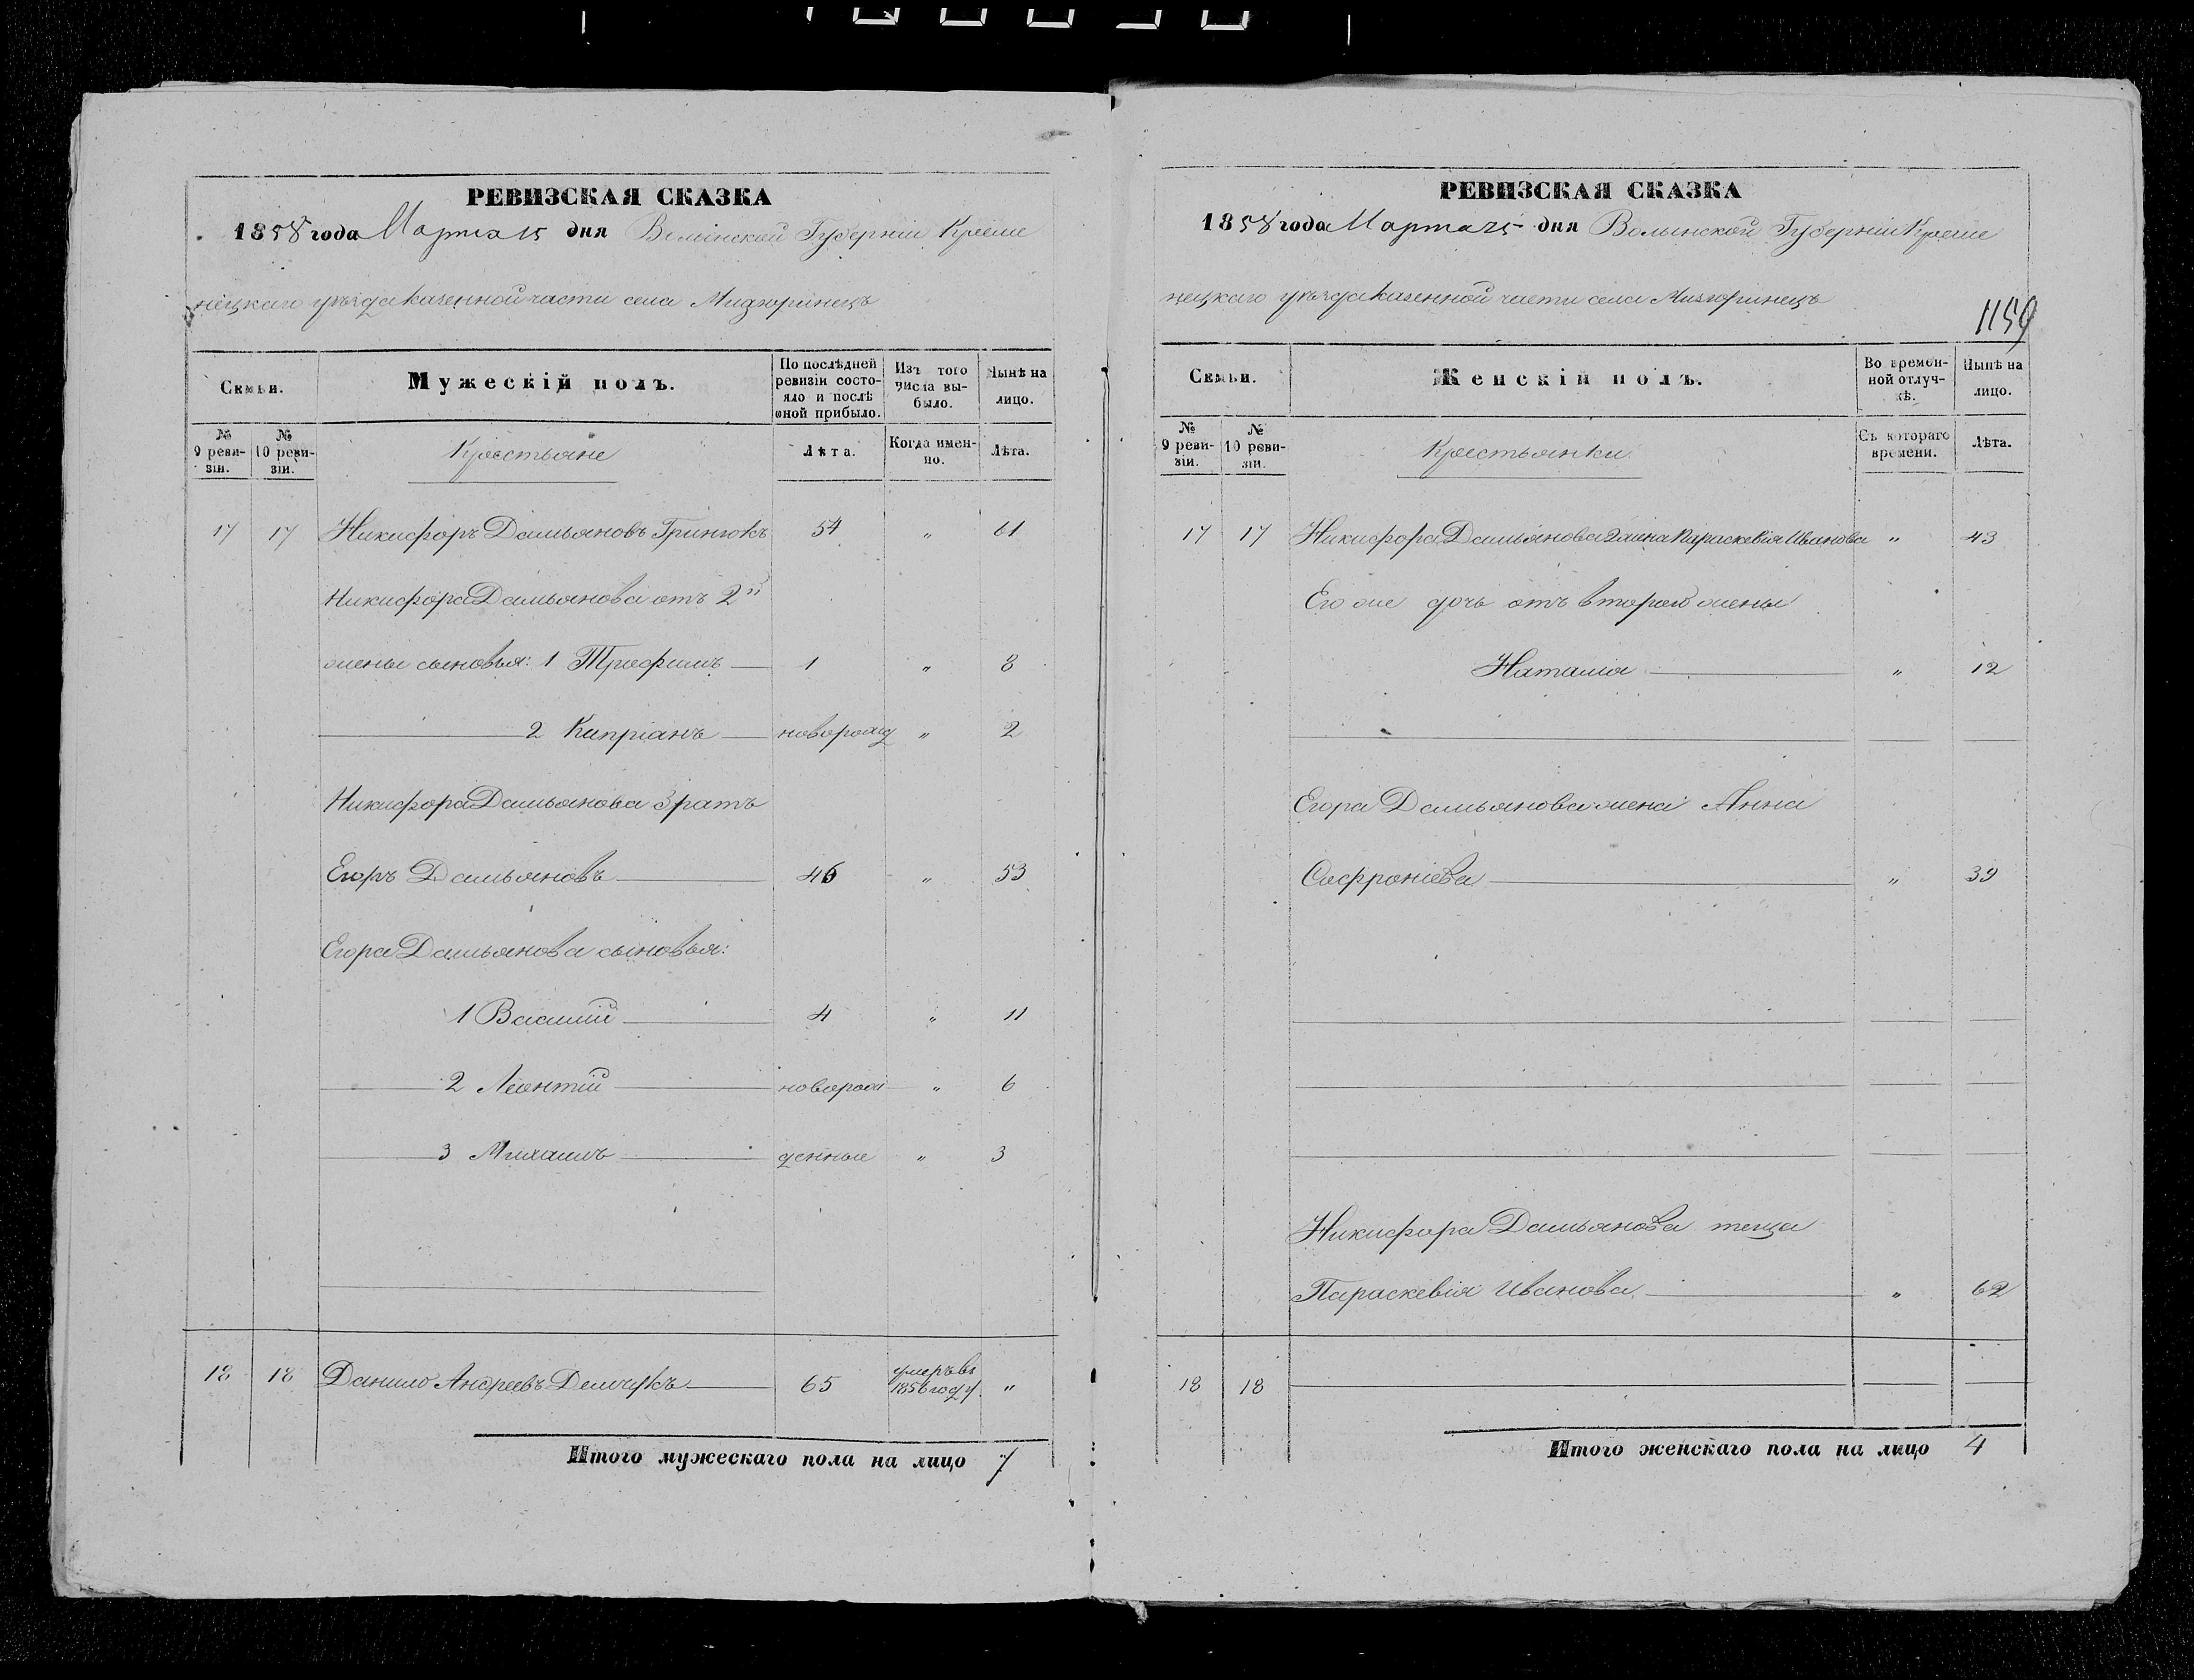 РЕВИЗСКАЯ СКАЗКА
1858 года Марта 15 дня Волынской Губерніи Креме
нецкаго уѣзда казенной части села Мизюринецъ
Семьи. Мужескій полъ. По послѣдней ревизіи состояло и послѣ оной прибыло. Изъ того числа выбыло. Нынѣ на лицо.
№ 9 ревизіи. № 10 ревизіи. Крестьяне Лѣта. Когда именно. Лѣта.
17 17 Никифоръ Дамьяновъ Гринюкъ 54 " 61
Никифора Дамьянова отъ 2й
жены сыновья: 1 Трофимъ 1 " 8
2 Кипріанъ новорожд " 2
Никифора Дамьянова 3 ратъ
Егоръ Дамьяновъ 46 " 53
Егора Дамьянова сыновья:
1 Василій 4 " 11
2 Леонтій новорож " 6
3 Михаилъ денные " 3
18 18 Данило Андреевъ Демчукъ 65 умеръ въ 1856 году "
Итого мужескаго пола на лицо 7
РЕВИЗСКАЯ СКАЗКА
1858 года Марта 15 дня Волынской Губерніи Креме
нецкаго уѣзда казенной части села Мизюринецъ
1159
Семьи. Женскій полъ. Во временной отлучкѣ. Нынѣ на лицо.
№ 9 ревизіи. № 10 ревизіи. Крестьянки Съ котораго времени. Лѣта.
17 17 Никифора Дамьянова 2 жена Параскевія Иванова " 43
Его же дочь отъ второй жены
Наталія " 12
Егора Дамьянова жена Анна
Софроніева " 39
Никифора Дамьянова теща
Параскевія Иванова " 62
18 18
Итого женскаго пола на лицо 4